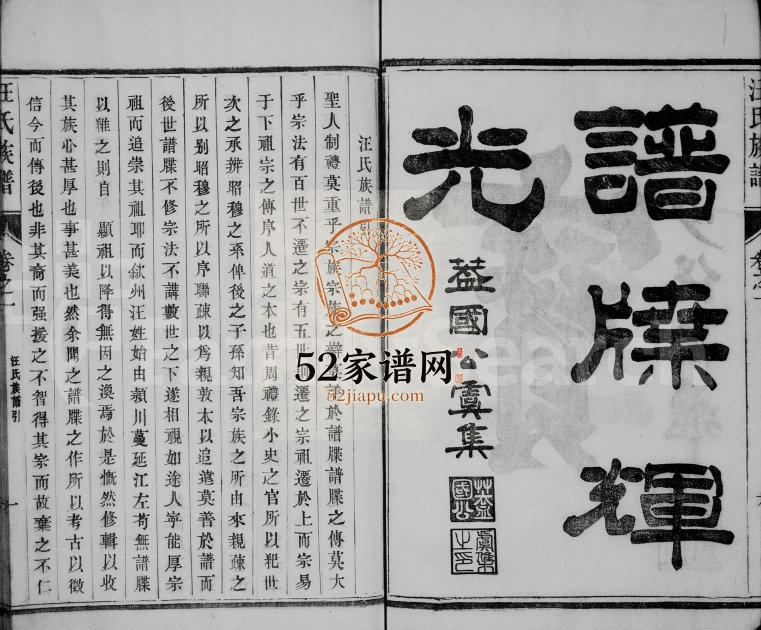 譜牒輝
光
益國公虞集
益國公
虞集之印
汪氏族譜
卷之一
汪氏族譜引
聖人制禮莫重乎宗族宗族之 於譜牒譜牒之傳莫大
乎宗法有百世不遷之宗有五世 遷之宗祖遷於上而宗易
于下祖宗之傳序人道之本也昔周禮錄小史之官所以 世
次之承辨昭穆之系俾後之子孫知吾宗族之所由來親疎之
所以别昭穆之所以序聯疎以爲親敦本以追遠莫善於譜而
後世譜牒不修宗法不講數世之下遂相視如途人寧能厚宗
祖而追崇其祖耶而歙州汪姓始由潁川蔓延江左苟無譜牒
以維之則自 顯祖以降得無因之渙焉於是慨然修輯以收
其族心甚厚也事甚美也然余聞之譜牒之作所以考古以徵
信今而傳後也非其裔而强援之不智得其宗而故棄之不仁
汪氏族譜
卷之一
汪氏族譜引
一
52家谱网
52jiapu.com